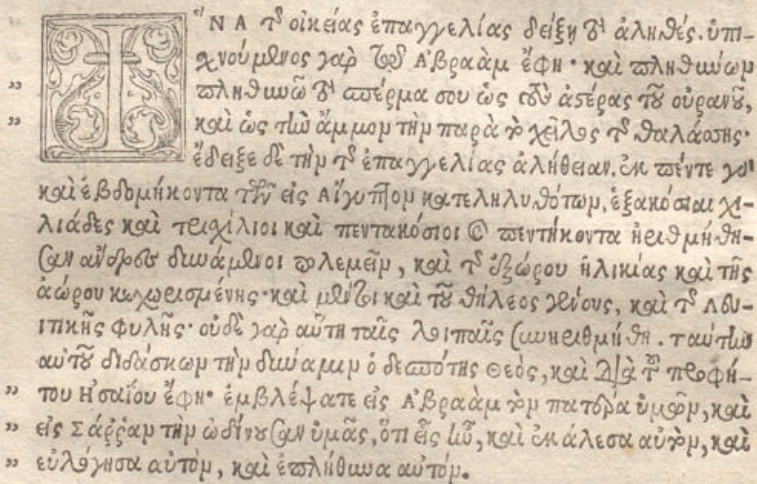 ἽΝΑ τῆς οἰκείας ἐπαγγελίας δείξῃ τὸ ἀληθές. ὑπι-
χνούμενος γὰρ τῷ Ἀβραὰμ ἔφη· καὶ πληθύνων
„ πληθυνῶ τὸ σπέρμα σου ὡς τοὺς ἀστέρας τοῦ οὐρανοῦ,
„ καὶ ὡς τὴν ἄμμον τὴν παρὰ τὸ χεῖλος τῆς θαλάσσης·
ἔδειξε δὲ τὴν τῆς ἐπαγγελίας ἀλήθειαν. ἐκ πέντε γὰρ
καὶ ἑβδομήκοντα τῶν εἰς Αἴγυπτον κατεληλυθότων, ἑξακόσιαι χι-
λιάδες καὶ τρισχίλιοι καὶ πεντακόσιοι καὶ πεντήκοντα ἠριθμήθη-
σαν ἄνδρες δυνάμενοι πολεμεῖν, καὶ τῆς ἐξώρου ἡλικίας καὶ τῆς
ἀώρου κεχωρισμένης· καὶ μέντοι καὶ τοῦ θήλεος γένους, καὶ τῆς Λευ-
ιτικῆς φυλῆς· οὐδὲ γὰρ αὕτη ταῖς λοιπαῖς συνηριθμήθη. ταύτην
αὐτοῦ διδάσκων τὴν δύναμιν ὁ δεσπότης Θεὸς, καὶ διὰ τοῦ προφή-
„ του Ἡσαΐου ἔφη· ἐμβλέψατε εἰς Ἀβραὰμ τὸν πατέρα ὑμῶν, καὶ
„ εἰς Σάῤῥαν τὴν ὠδίνουσαν ὑμᾶς, ὅτι εἷς ἦν, καὶ ἐκάλεσα αὐτὸν, καὶ
„ εὐλόγησα αὐτὸν, καὶ ἐπλήθυνα αὐτόν.